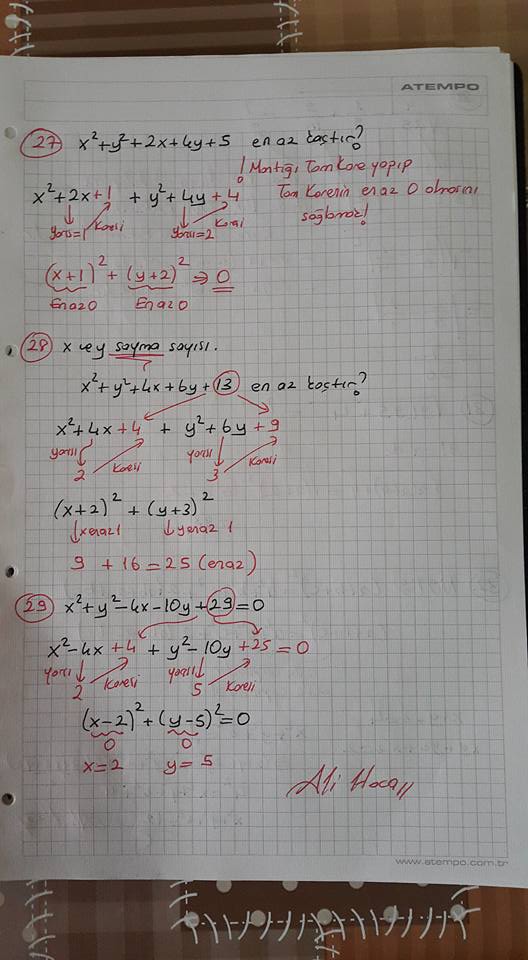 ATEMPO
27 x²+y²+2x+4y+5 en az kaçtır?
! Mantığı Tam Kare yapıp
x²+2x+1 + y²+4y+4 Tam Karenin en az 0 olmasını
yarısı=1 Karesi yarısı=2 Karesi sağlarız!
(x+1)² + (y+2)² ⇒ 0
En az 0 En az 0
28 x ve y sayma sayısı.
x²+y²+4x+6y+13 en az kaçtır?
x²+4x+4 + y²+6y+9
yarısı Karesi yarısı Karesi
2 3
(x+2)² + (y+3)²
x en az 1 y en az 1
9 + 16 = 25 (en az)
29 x²+y²-4x-10y+29=0
x²-4x+4 + y²-10y+25=0
yarısı Karesi yarısı Karesi
2 5
(x-2)²+(y-5)²=0
0 0
x=2 y=5
Ali Hoca
www.atempo.com.tr